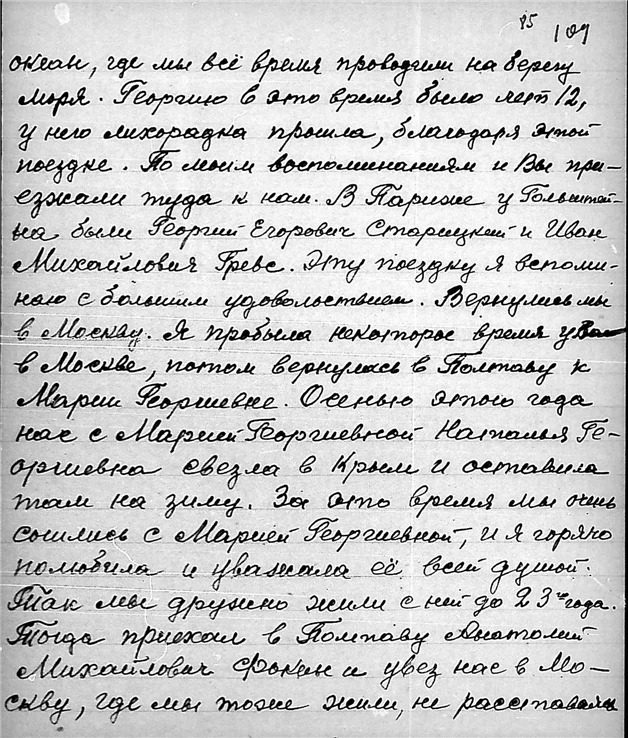 85 109
океан, где мы всё время проводили на берегу
моря. Георгию в это время было лет 12,
у него лихорадка прошла, благодаря этой
поездке. По моим воспоминаниям и Вы при-
езжали туда к нам. В Париже у Гольштей-
на были Георгий Егорович Старицкий и Иван
Михайлович Гревс. Эту поездку я вспоми-
наю с большим удовольствием. Вернулись мы
в Москву. Я пробыла некоторое время у Вас
в Москве, потом вернулась в Полтаву к
Марии Георгиевне. Осенью этого года
нас с Марией Георгиевной Наталья Ге-
оргиевна свезла в Крым и оставила
там на зиму. За это время мы очень
сошлись с Марией Георгиевной, и я горячо
полюбила и уважала её всей душой.
Так мы дружно жили с ней до 23го года.
Тогда приехал в Полтаву Анатолий
Михайлович Фокин и увез нас в Мо-
скву, где мы тоже жили, не расставаясь